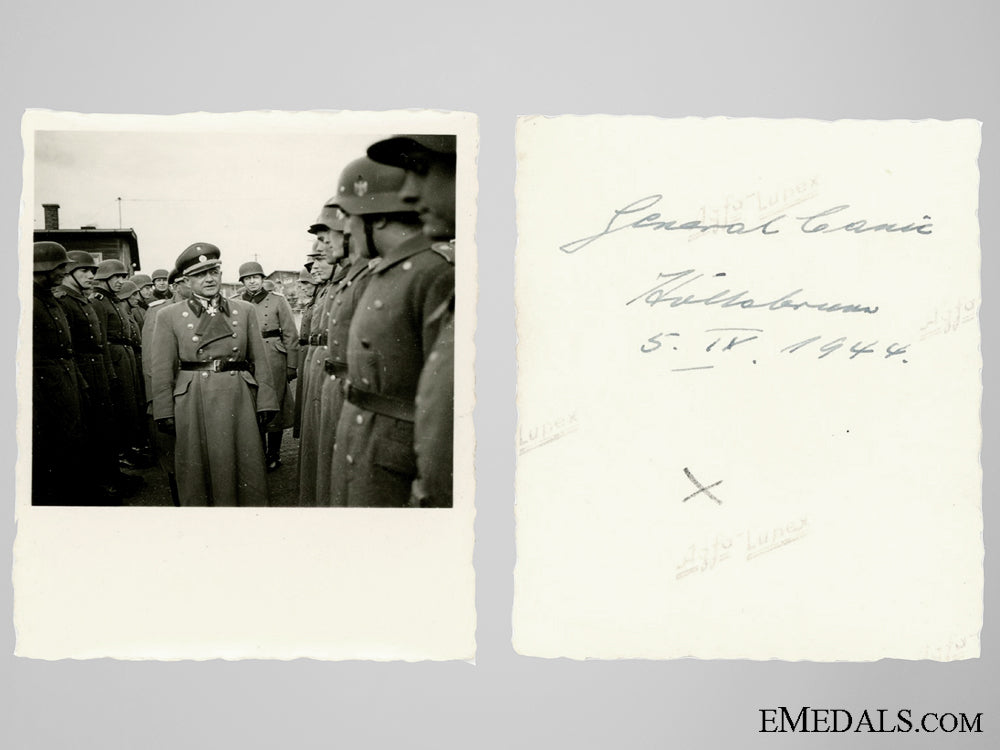 General Canić
Hollabrunn
5. IV. 1944.
Agfa-Lupex
Agfa-
Lupex
Agfa-Lupex
EMEDALS.COM